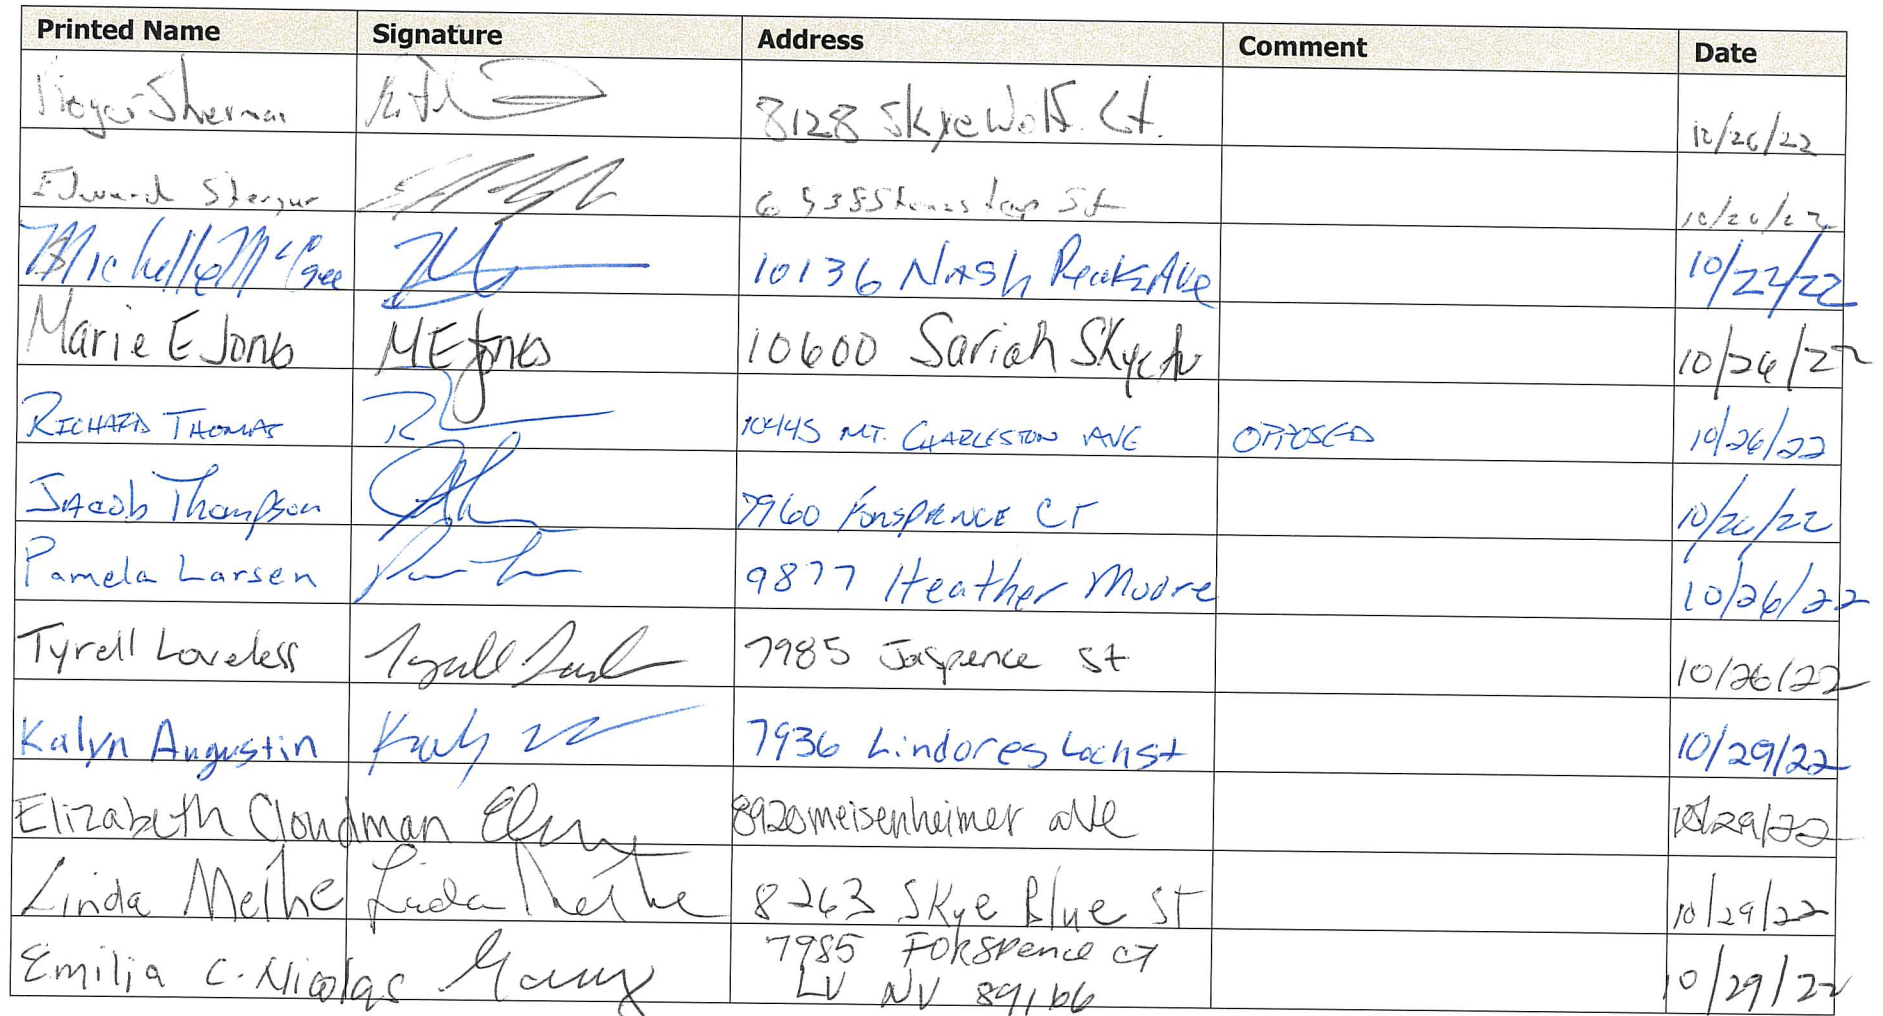 Printed Name Signature Address Comment Date
Sherman 8128 Skye Wolf Ct. 10/26/22
Edward St 10/26/22
Michelle McGee 10136 Nash Peak Ave 10/22/22
Marie E Jones ME Jones 10600 Sariah Skye Av 10/26/22
RICHARD THOMAS 10445 MT. CHARLESTON AVE OPPOSED 10/26/22
Jacob Thompson 7960 CT 10/26/22
Pamela Larsen 9877 Heather Moore 10/26/22
Tyrell Loveless 7985 Jaspence St 10/26/22
Kalyn Augustin 7936 Lindores Loch St 10/29/22
Elizabeth Cloudman 8920 meisenheimer ave 10/29/22
Linda Methe Linda Methe 8263 Skye Blue St 10/29/22
Emilia C. Nicolas 7985 Forspence ct
LV NV 89166 10/29/22